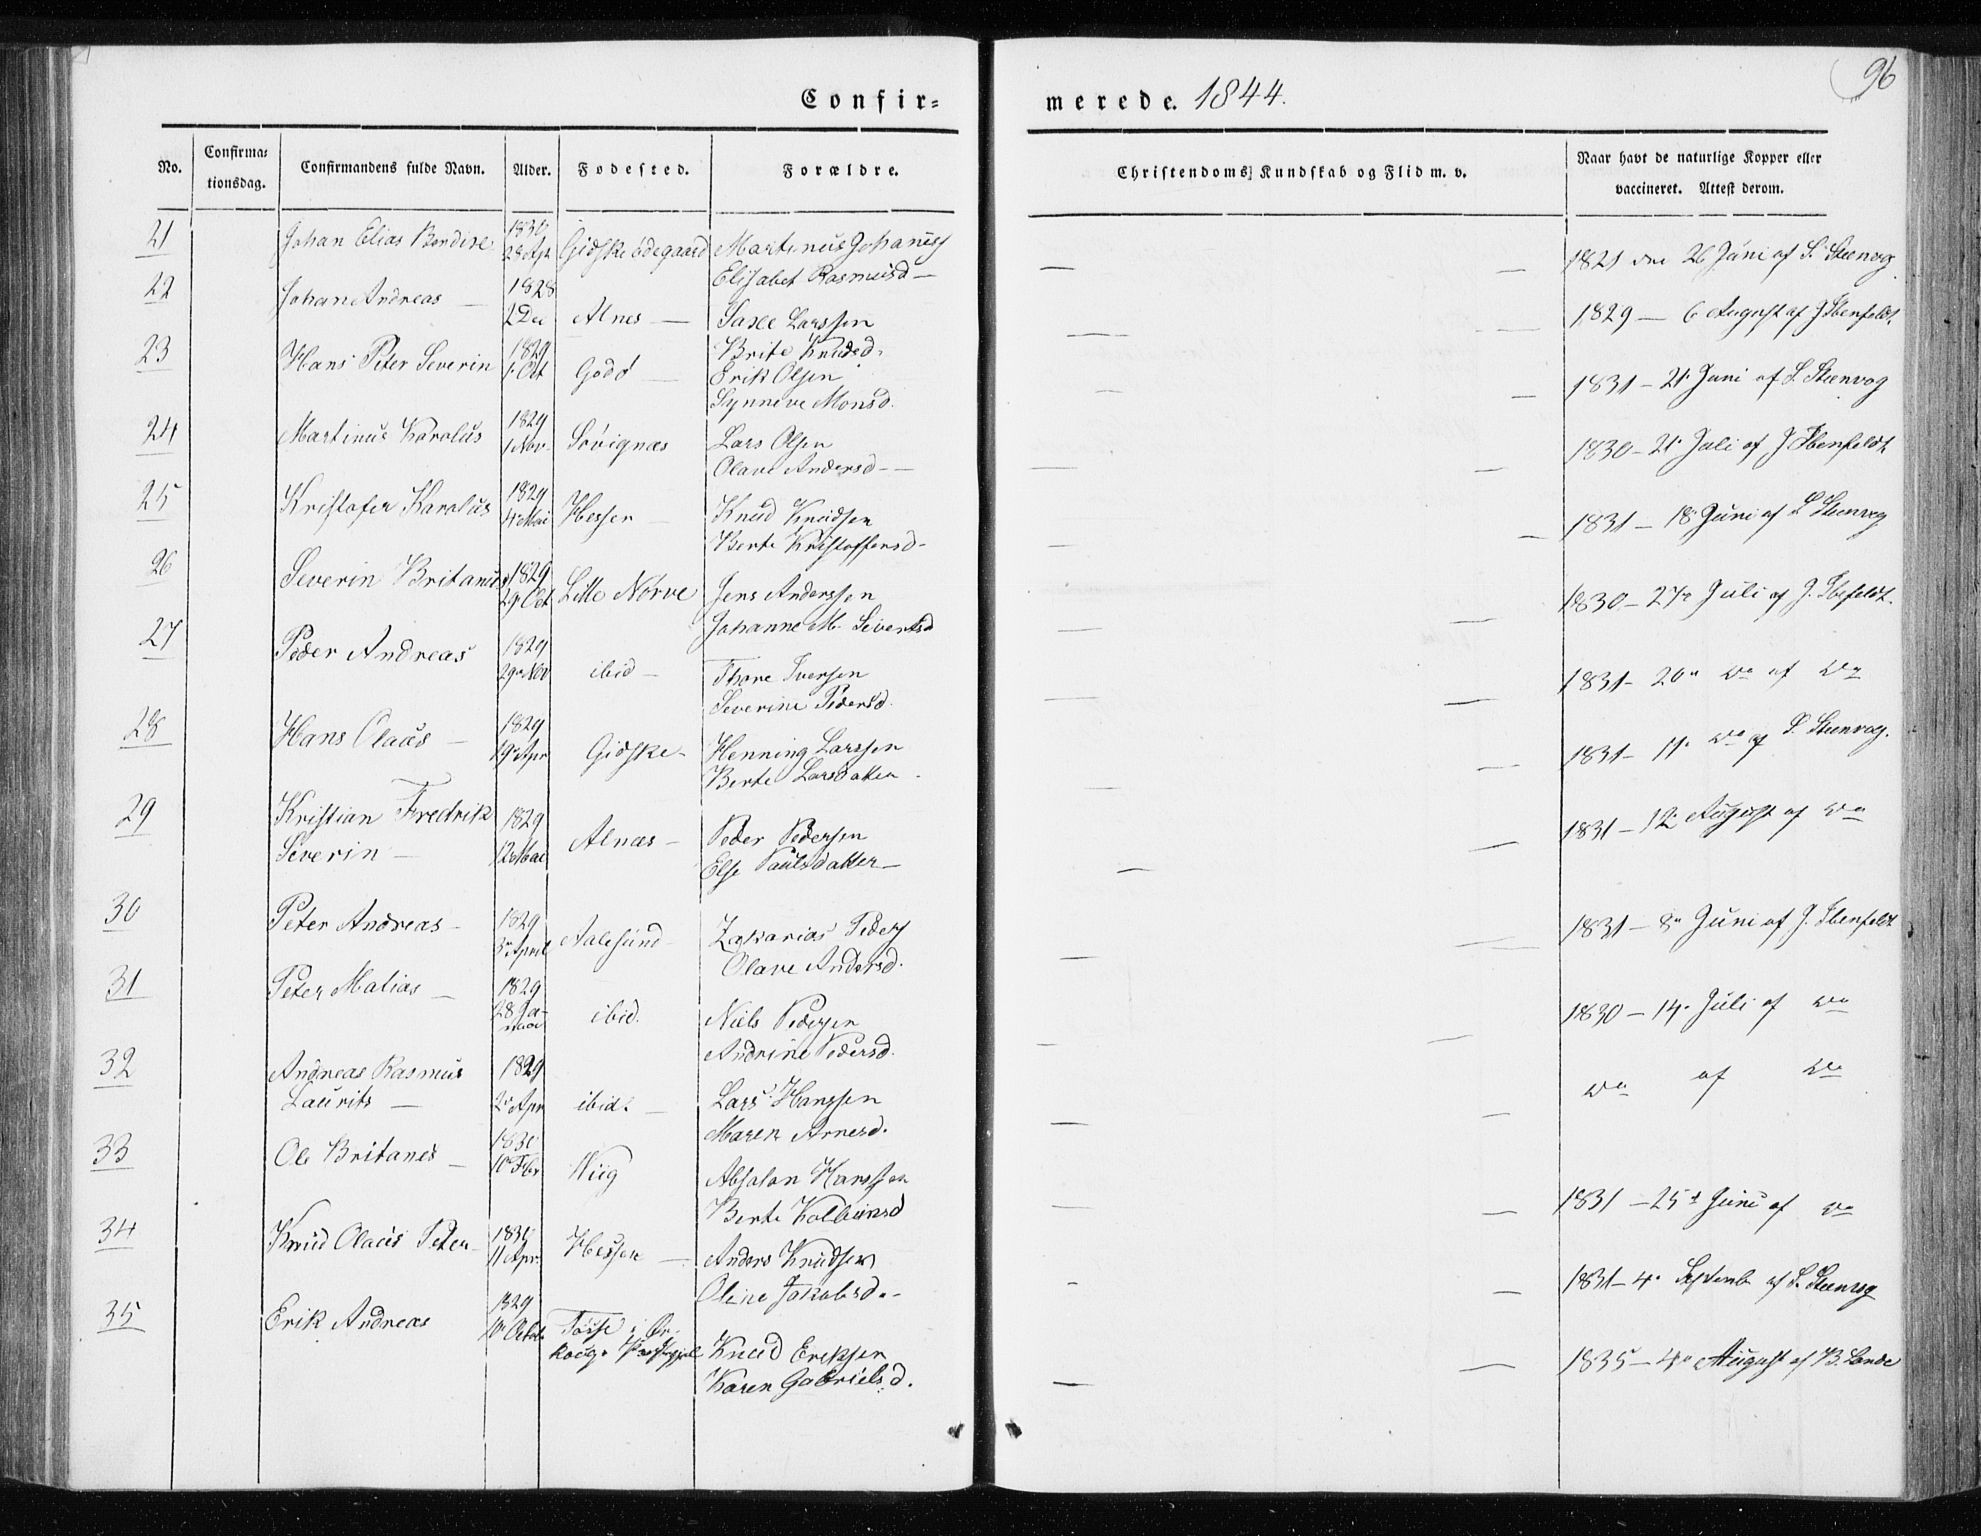 96
Confir= merede. 1844.
No. Confirma= tionsdag. Confirmandens fulde Navn. Alder. Fødested. Forældre. Christendoms Kundskab og Flid m. v. Naar havt de naturlige Kopper eller vaccineret. Attest derom.
21 Johan Elias 1830 Gidske ødegaard Martinus Johaness 1821 den 26 Juni af S. Steenvog
28 Apr Elisabet Rasmusd —
22 Johan Andreas — 1828 Alnes — Saxe Larssen 1829 — 6 August af J Ibenfeldt
2 Dec Brite Knudsd.
23 Hans Peter Severin 1829 Godø — Erik Olsen 1831 — 21. Juni af S. Steenvog
1. Oct Synneve Monsd.
24 Martinus Karolus 1829 Søvignæs Lars Olsen 1830 — 21. Juli af J Ibenfeldt
1 Nov. Olave Andersd —
25 Kristofer Karolus 1829 Hessen — Knud Knudsen 1831 — 18. Juni af S Steenvog
4. Mai Berte Kristoffersd —
26 Severin Britanus 1829 Lille Nørve Jens Anderssen 1830 — 27. Juli af J. Ibefeldt.
29. Oct Johanne M. Sivertsd
27 Peder Andreas 1829 ibid — Thore Iversen 1831 — 20. do af do
29. Nov Severine Pedersd.
28 Hans Olaus — 1829 Gidske — Henning Larssen 1831 — 11. do af S. Steenvog.
19. Apr Berte Larsdatter
29 Kristian Fredrik 1829 Alnæs — Peder Pedersen 1831 — 12. August af do
Severin — 12 Mai Else Paulsdatter —
30 Peter Andreas — 1829 Aalesund — Zakarias Peders 1831 — 8. Juni af J. Ibenfeldt
3. April Olave Andersd.
31 Peter Matias — 1829 ibid. Niels Pedersen 1830 — 14. Juli af do
28 Ja- Andrine Pedersd.
32 Andreas Rasmus 1829 ibid. — Lars Hanssen do af do
Laurits — 2. Apr Maren Arnesd.
33 Ole Britanes — 1830 Absalon Hanssen 1831 — 25. Juni af do
10. Fbr Berte Kolbensd
34 Knud Olaus Peter — 1830 Hessen — Anders Knudsen 1831 — 4. Septemb af S. Steenvog
11 Apr. Oline Jakobsd. —
35 Erik Andreas 1829 i Ør- Knud Eriksen 1835 — 4. August af B. Lande
Karen Gabrielsd.